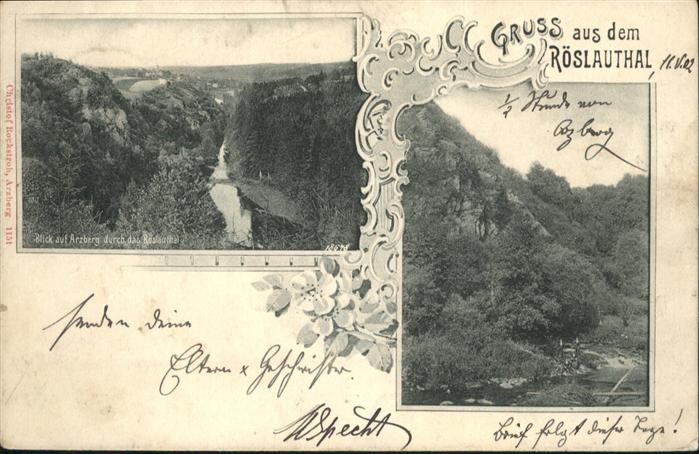 GRUSS aus dem
RÖSLAUTHAL
, 11.V.02
½ Stunde von
Arzberg
Christof Rockstroh, Arzberg 1151
Blick auf Arzberg durch das Röslauthal
senden deine
Eltern & Geschwister
Specht
Brief folgt dieser Tage!